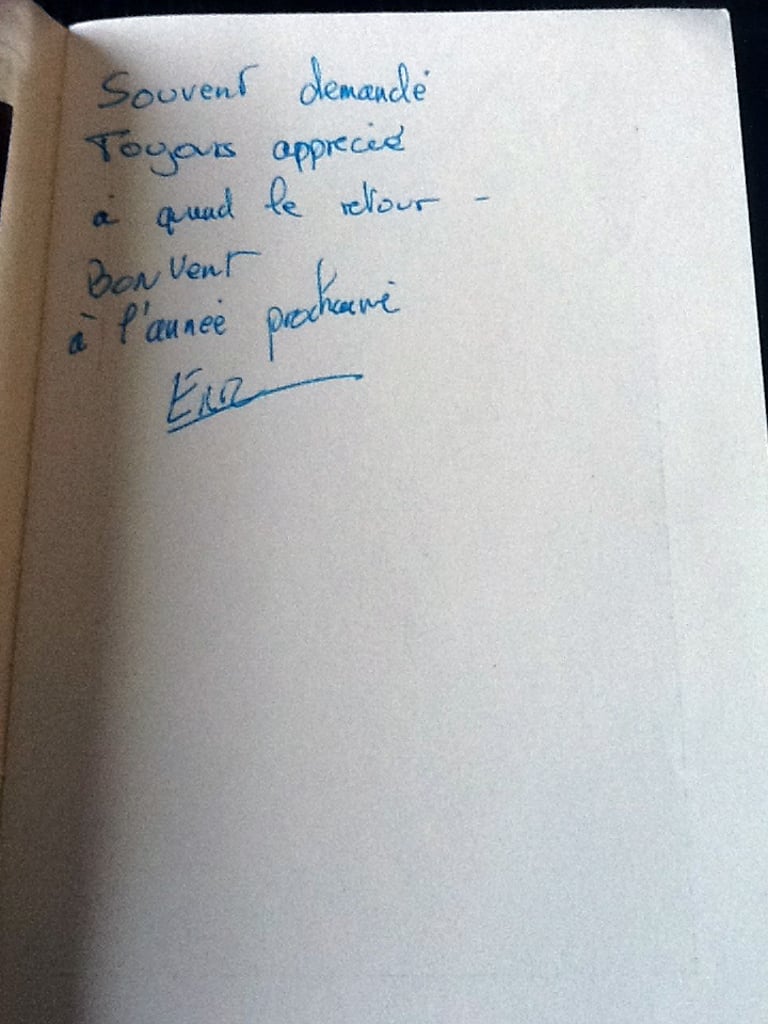 Souvent demandé
Toujours apprecié
à quand le retour -
Bon Vent
à l'année prochaine